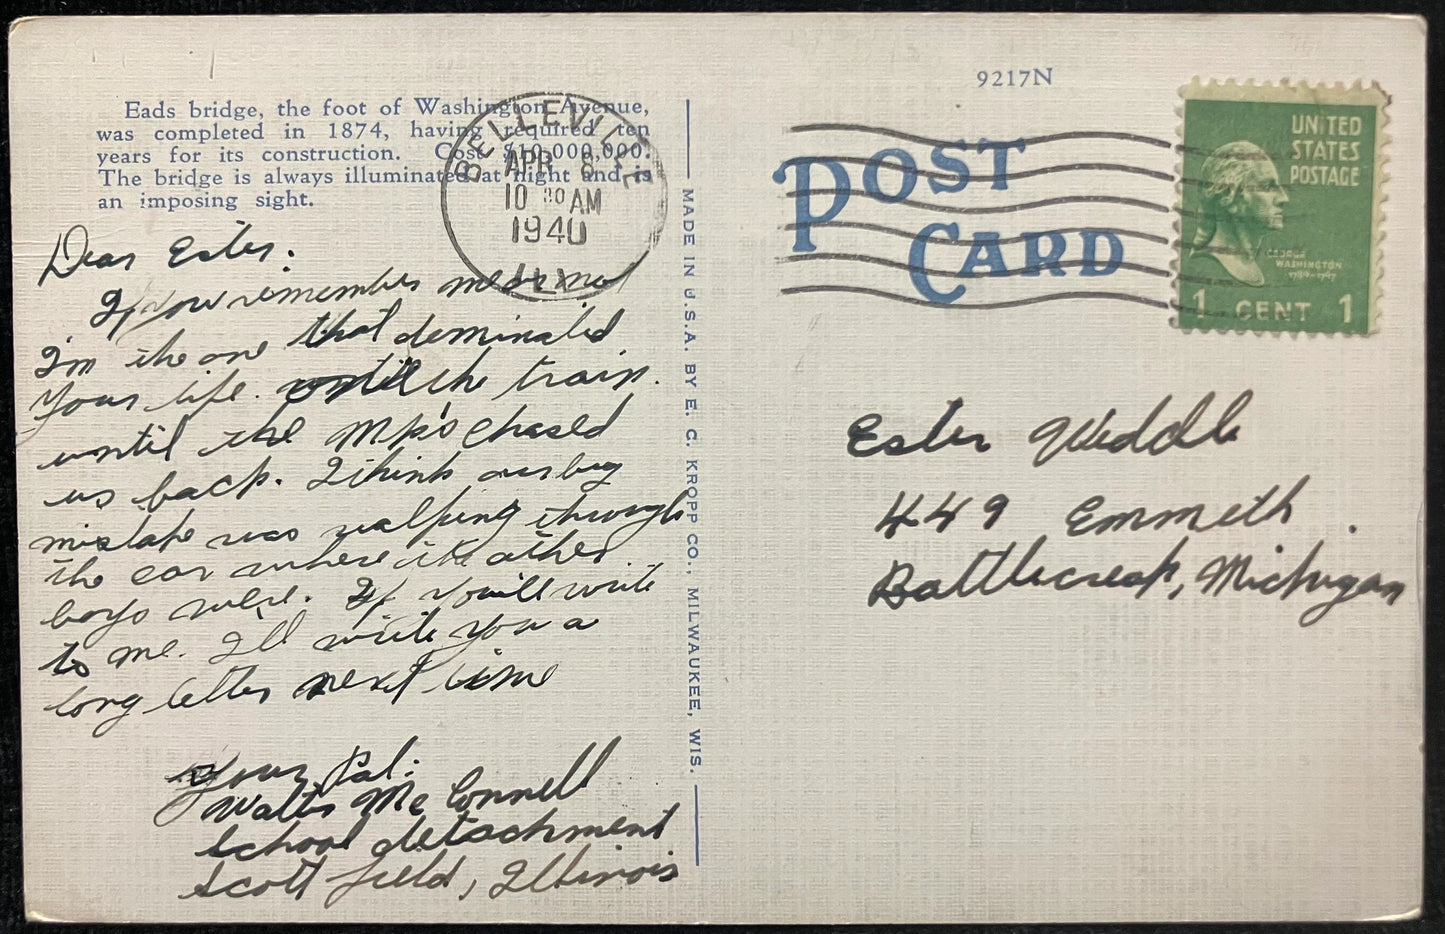 9217N
Eads bridge, the foot of Washington Avenue,
was completed in 1874, having required ten
years for its construction. Cost $10,000,000.
The bridge is always illuminated at night and is
an imposing sight.
BELLEVILLE
APR 8
10 30 AM
1940
ILL
POST
CARD
UNITED
STATES
POSTAGE
GEORGE
WASHINGTON
1789-1797
1 CENT 1
MADE IN U.S.A. BY E. C. KROPP CO., MILWAUKEE, WIS.
Dear Ester.
If you remember me
I'm the one that dominated
your life. until the train.
until the MP's chased
us back. I think our big
mistake was walking through
the car where the other
boys were. If you'll write
to me. I'll write you a
long letter next time
Your Pal:
Walter McConnell
School detachment
Scott field, Illinois
Ester
449 Emmeth.
Battlecreek, Michigan